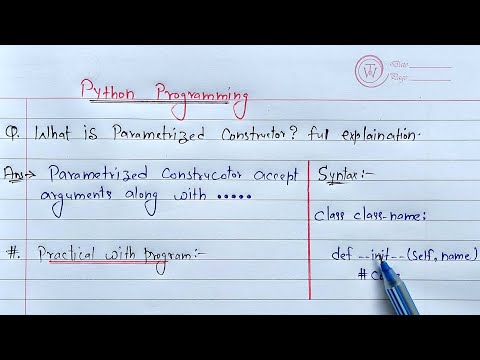 Date
Page
TW
Python Programming
Q. What is Parametrized Constructor? full explaination.
Ans→ Parametrized Construcotor accept
arguments along with .....
#. Practical with program:-
Syntax:-
class class-name:
def --init--(self, name)
#